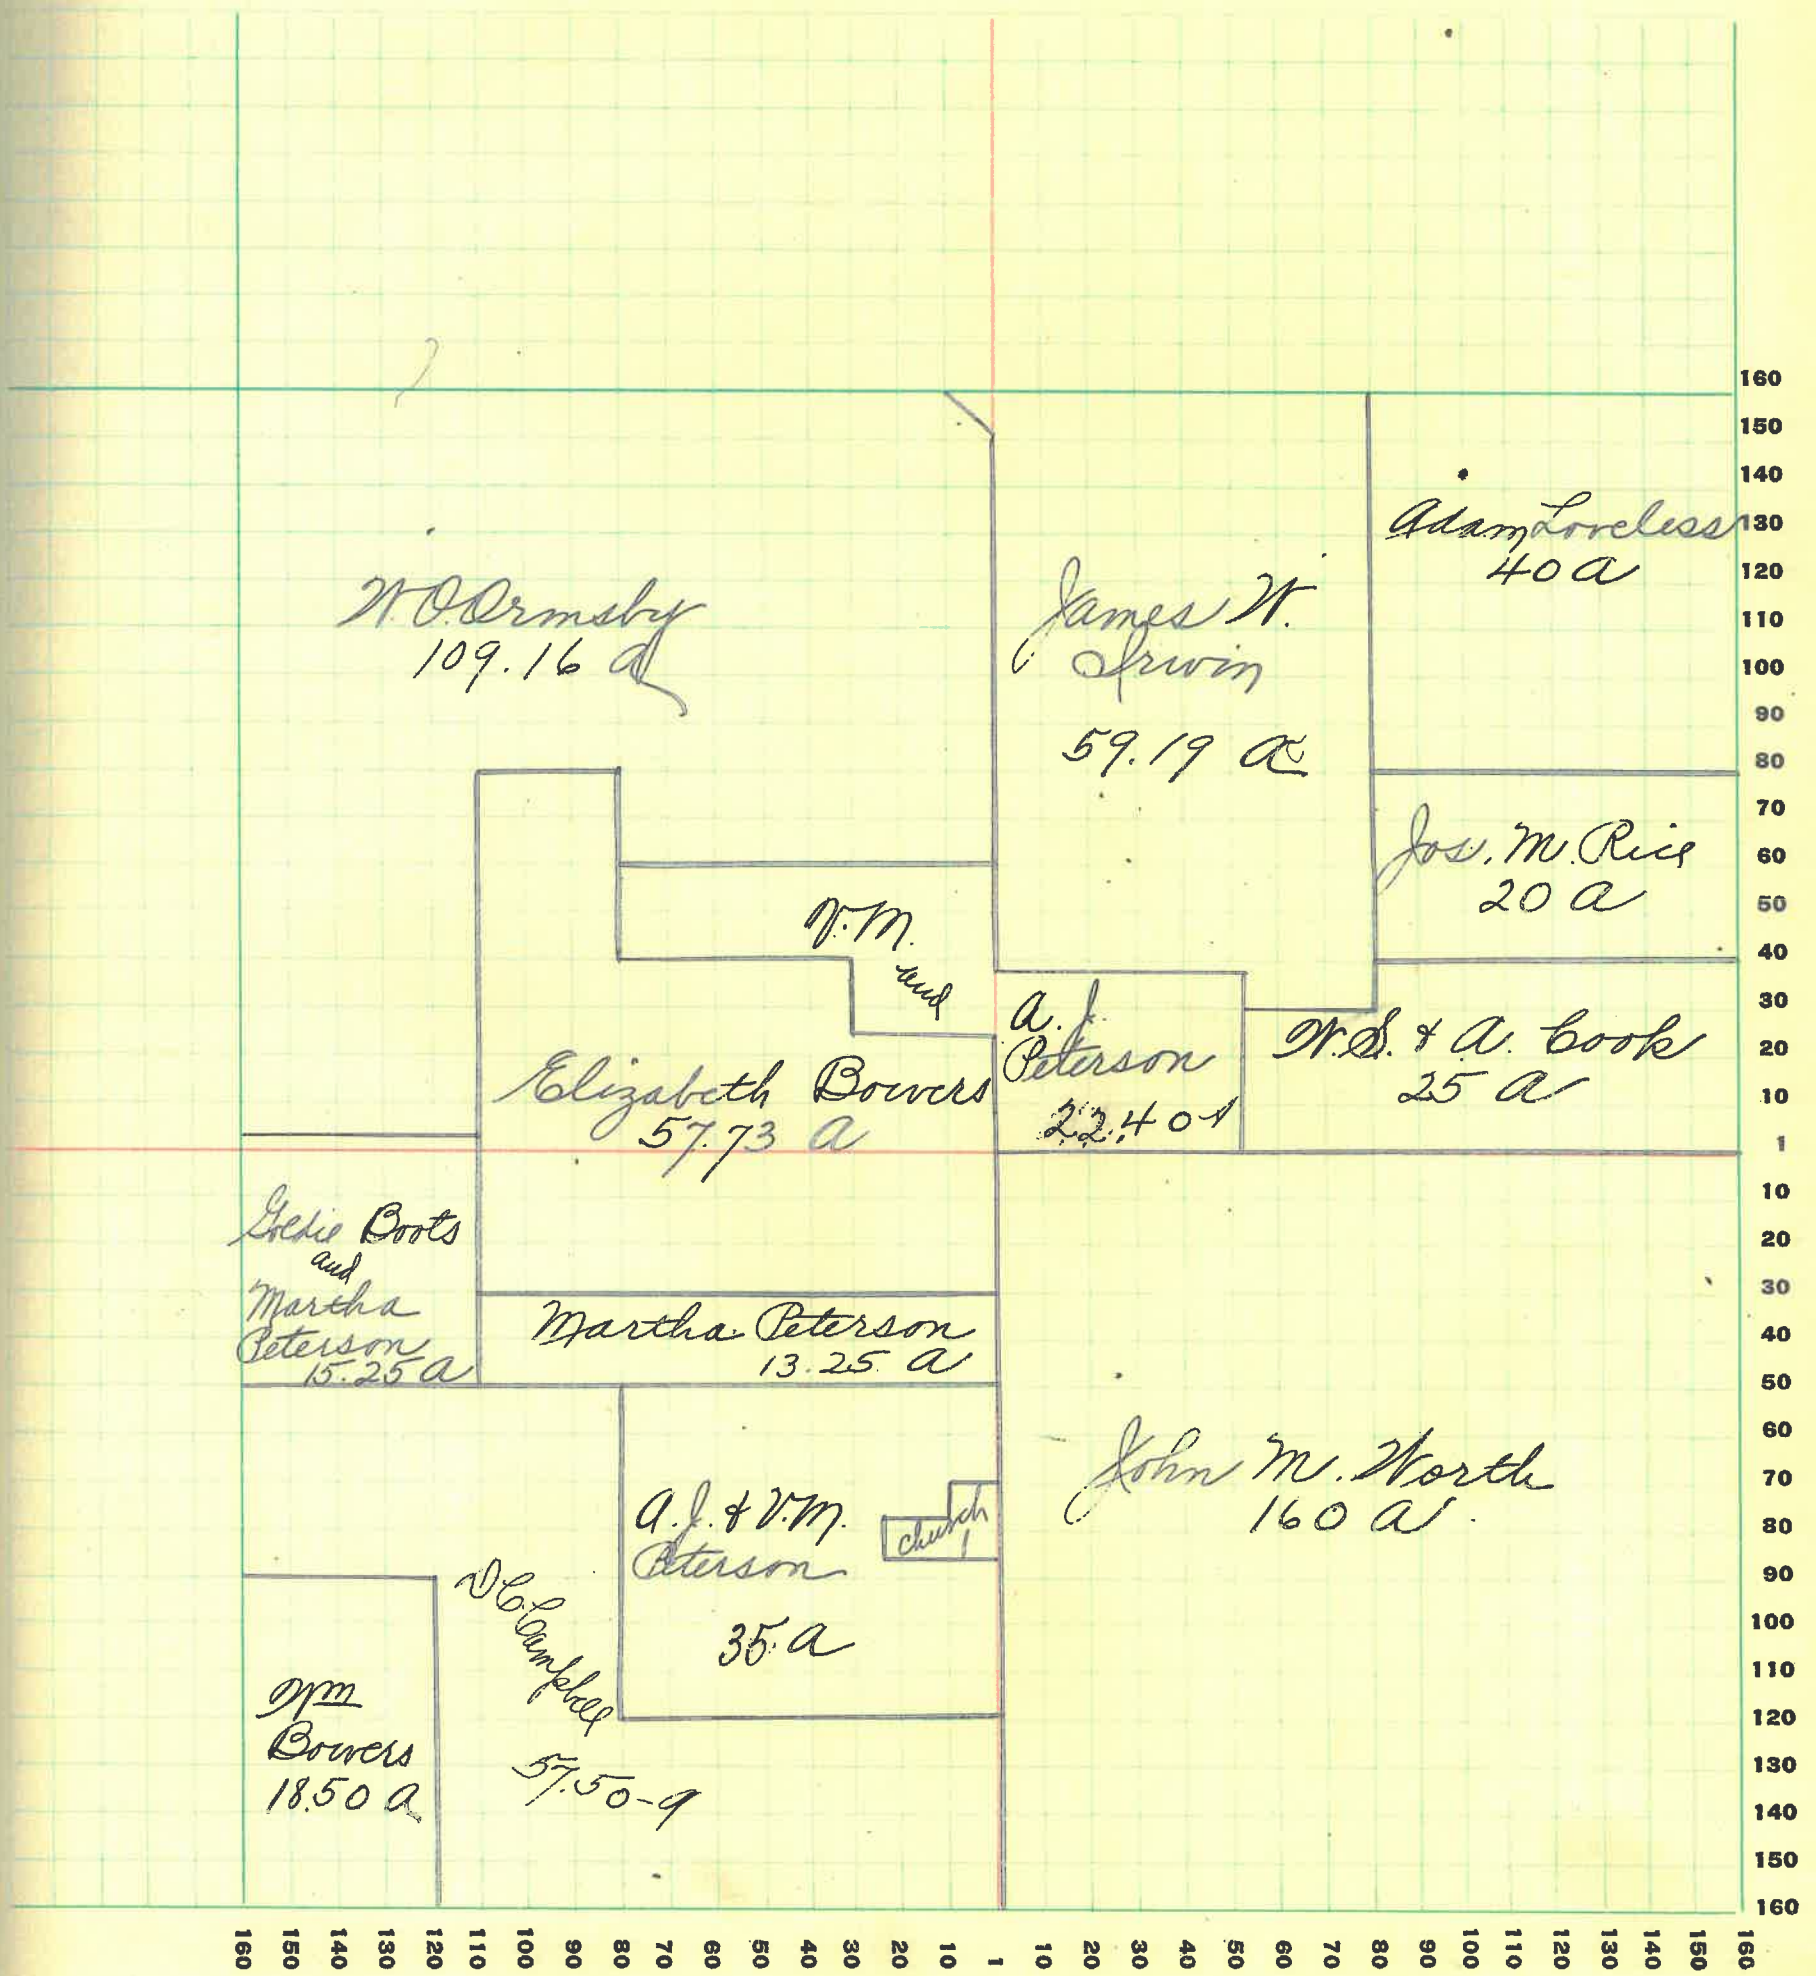 W. O. Ormsby
109.16 a
James W.
Irwin
59.19 a
Adam Loveless
40 a
Jos. M. Rice
20 a
V. M.
and
A. J.
Peterson
22.40 A
W. S. & A. Cook
25 a
Elizabeth Bowers
57.73 a
Goldie Boots
and
Martha
Peterson
15.25 a
Martha Peterson
13.25 a
A. J. & V. M.
Peterson
35 a
church
1
John M. Worth
160 a.
D C Campbell
57.50 - a
Wm
Bowers
18.50 a
160
150
140
130
120
110
100
90
80
70
60
50
40
30
20
10
1
10
20
30
40
50
60
70
80
90
100
110
120
130
140
150
160
160 150 140 130 120 110 100 90 80 70 60 50 40 30 20 10 1 10 20 30 40 50 60 70 80 90 100 110 120 130 140 150 160